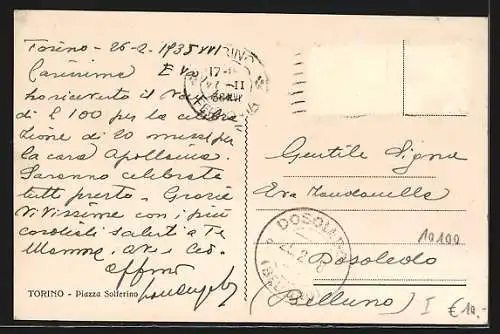 Torino - 26-2-1935 XVI
Carissima Eva
ho ricevuto il
di £ 100 per la celebra
zione di 20 messe per
la cara Apollonia.
Saranno celebrate
tutte presto - Grazie
vivissime con i più
cordiali saluti a Te
Mamma,
affmo
TORINO - Piazza Solferino
TORINO
17-
II
Gentile Sigra
Eva
DOSOLEDO
Dosoledo
(Belluno)
10100
I € 10,-